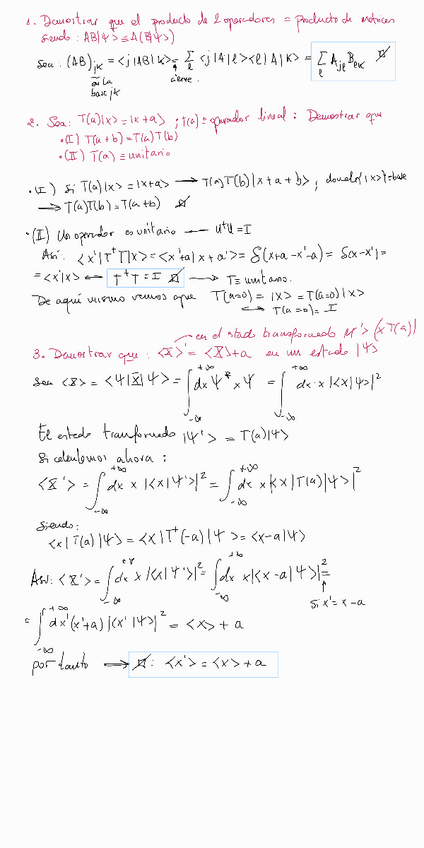 1. Demostrar que el producto de 2 operadores = producto de matrices
siendo: AB|Ψ> ≡ A(B|Ψ>)
Sea: (AB)jk = <j|AB|k> = Σℓ <j|A|ℓ><ℓ|A|k> = Σℓ Ajℓ Bℓk
en la base jk
cierre.
2. Sea: T(a)|x> = |x+a> ; T(a) = operador lineal: Demostrar que
·(I) T(a+b) = T(a)T(b)
·(II) T(a) ≡ unitario
·(I) Si T(a)|x> = |x+a> → T(a)T(b)|x+a+b>, donde {|x>} = base
→ T(a)T(b) = T(a+b)
·(II) Un operador es unitario — U†U = I
Así: <x'|T†T|x> = <x'+a|x+a'> = δ(x+a-x'-a) = δ(x-x') =
= <x'|x> ↔ T†T = I → T ≡ unitario.
De aquí mismo vemos que T(a=0) = |x> = T(a=0)|x>
↔ T(a=0) = I
en el estado transformado |Ψ'> (x T(a))
3. Demostrar que: <X>' = <X> + a en un estado |Ψ>
Sea <X> = <Ψ|X|Ψ> = ∫-∞+∞ dx Ψ* x Ψ = ∫-∞+∞ dx x |<x|Ψ>|²
El estado transformado |Ψ'> = T(a)|Ψ>
Si calculamos ahora:
<X'> = ∫-∞+∞ dx x |<x|Ψ'>|² = ∫-∞+∞ dx x |<x|T(a)|Ψ>|²
Siendo:
<x|T(a)|Ψ> = <x|T†(-a)|Ψ> = <x-a|Ψ>
Así: <X'> = ∫-∞+∞ dx x |<x|Ψ'>|² = ∫-∞+∞ dx x|<x-a|Ψ>|² =
si x' = x-a
= ∫-∞+∞ dx'(x'+a)|<x'|Ψ>|² = <x> + a
por tanto → : <x'> = <x> + a